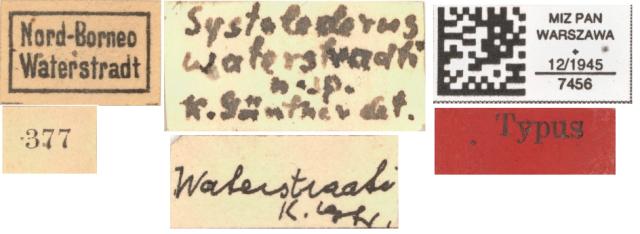 Nord-Borneo
Waterstradt
Systolederus
waterstradti
n. sp.
K. Günther det.
MIZ PAN
WARSZAWA
12/1945
7456
377
Typus
Waterstradti
K.